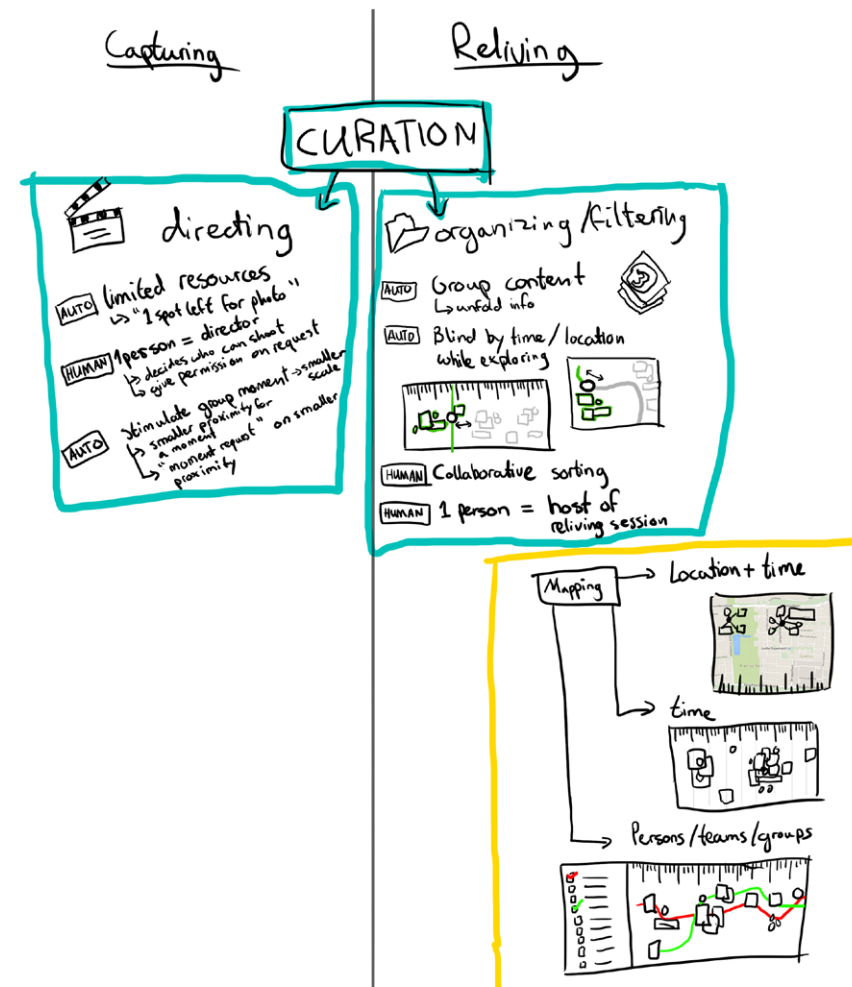 Capturing
Reliving
CURATION
directing
AUTO limited resources
↳ "1 spot left for photo"
HUMAN 1 person = director
↳ decides who can shoot
↳ give permission on request
AUTO Stimulate group moment → smaller scale
↳ smaller proximity for
a moment
↳ "moment request" on smaller
proximity
organizing/filtering
AUTO Group content
↳ unfold info
AUTO Blind by time/location
while exploring
HUMAN Collaborative sorting
HUMAN 1 person = host of
reliving session
Mapping
Location + time
time
Persons/teams/groups